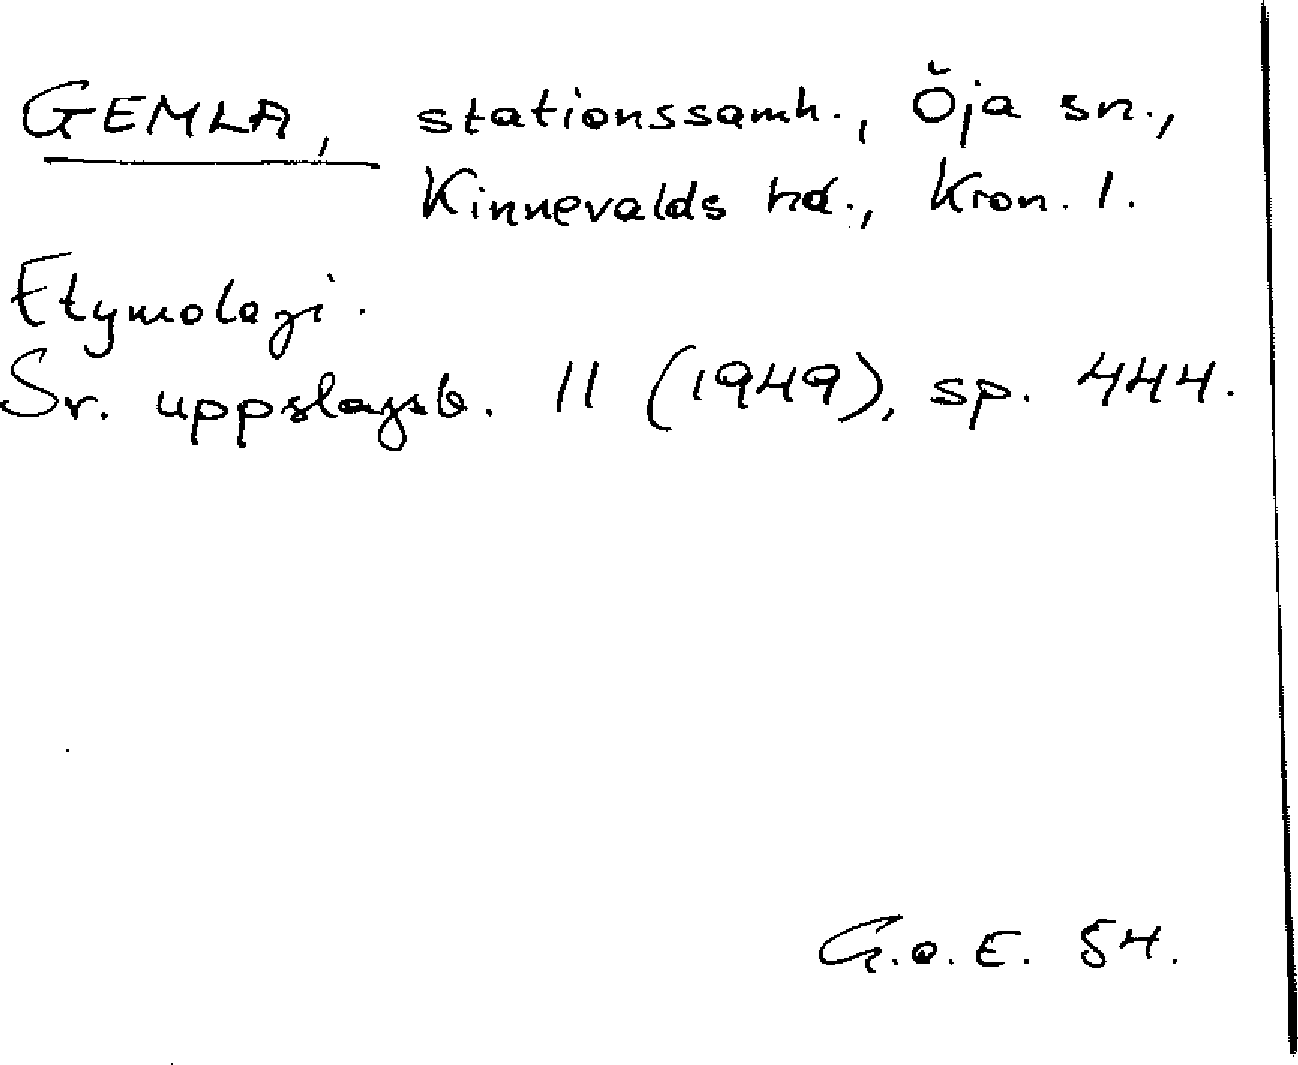 GEMLA, stationssamh., Öja sn.,
Kinnevalds hd., Kron. l.
Etymologi.
Sv. uppslagsb. 11 (1949), sp. 444.
G.o.E. 54.